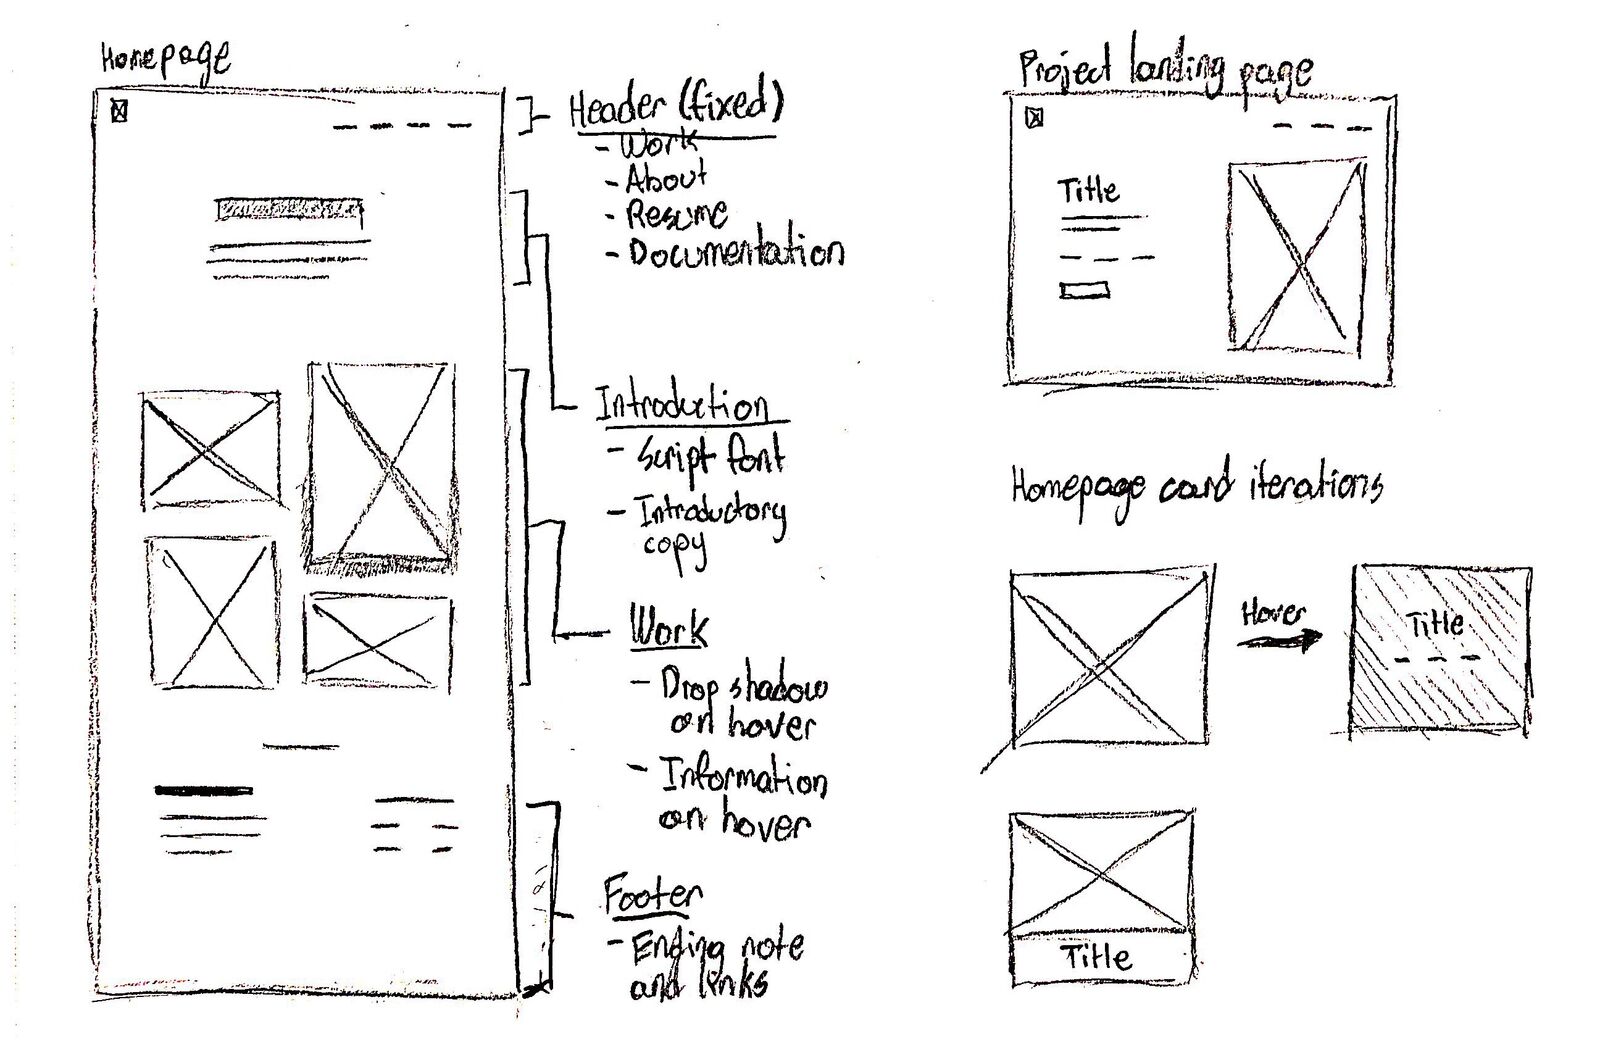 Homepage
Header (fixed)
- Work
- About
- Resume
- Documentation
Introduction
- Script font
- Introductory
copy
Work
- Drop shadow
on hover
- Information
on hover
Footer
- Ending note
and links
Project landing page
Title
Homepage card iterations
Hover
Title
Title